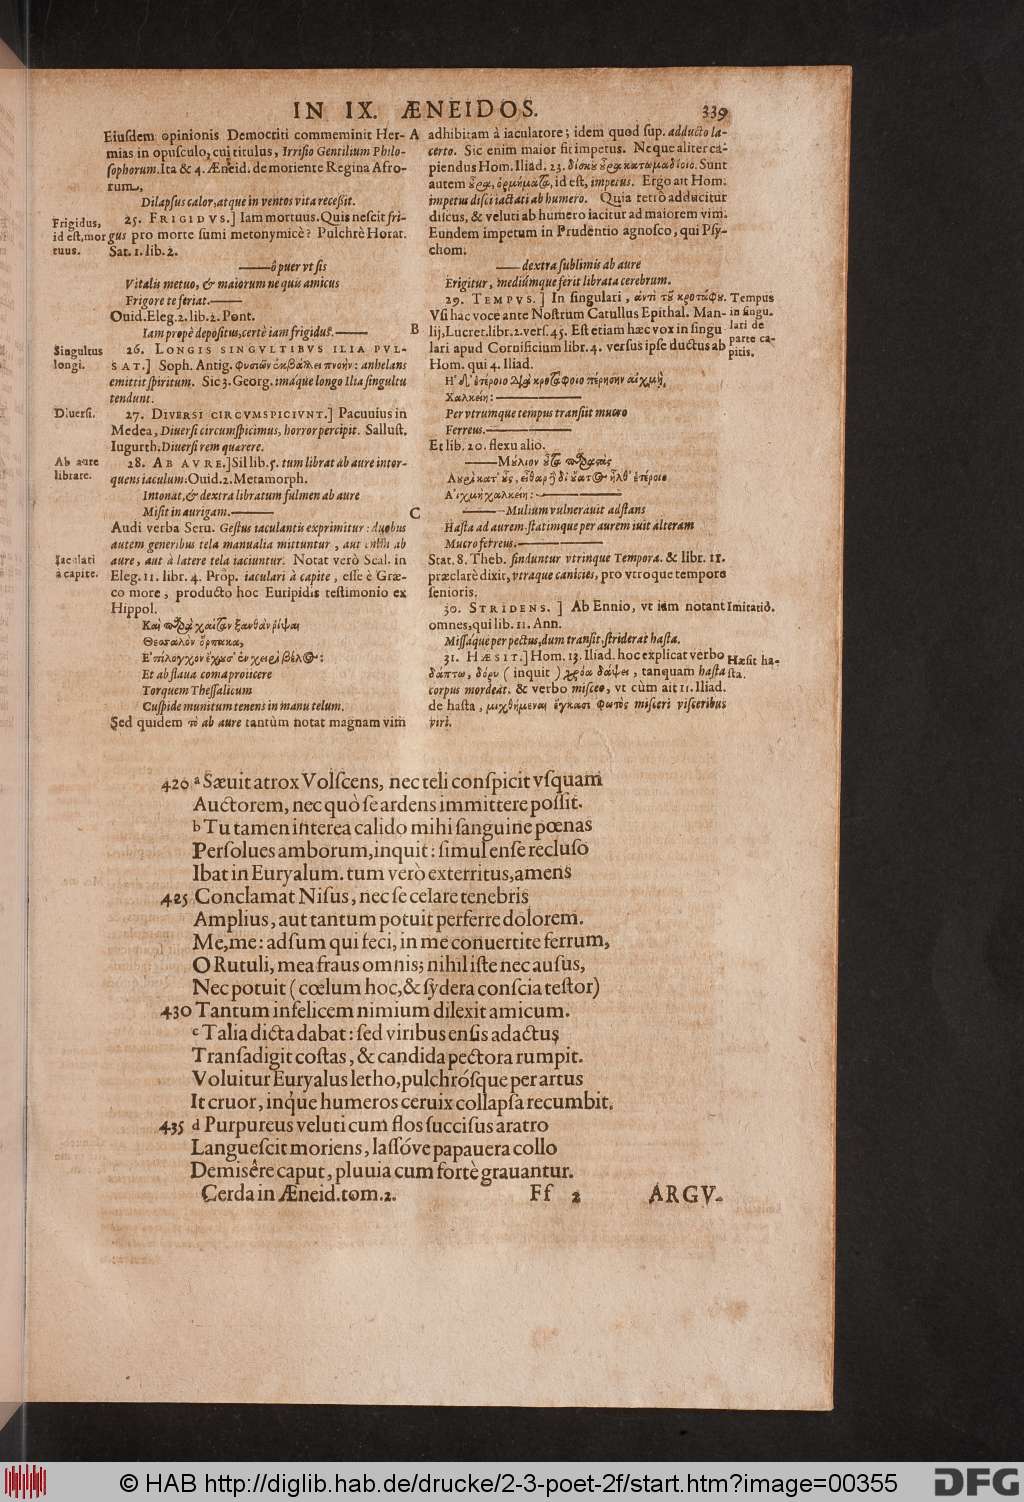 IN IX. ÆNEIDOS. 339
Eiuſdem opinionis Democriti commeminit Her-
mias in opuſculo, cui titulus, Irriſio Gentilium Philo-
ſophorum. Ita & 4. Æneid. de moriente Regina Afro-
rum,
Dilapſus calor, atque in ventos vita receſsit.
Frigidus,
id eſt, mor
tuus.
25. FRIGIDVS.] Iam mortuus. Quis neſcit fri-
gus pro morte ſumi metonymicè? Pulchrè Horat.
Sat. 1. lib. 2.
ô puer vt ſis
Vitalis metuo, & maiorum ne quis amicus
Frigore te feriat.
Ouid. Eleg. 2. lib. 2. Pont.
Iam propè depoſitus, certè iam frigidus.
Singultus
longi.
26. LONGIS SINGVLTIBVS ILIA PVL-
SAT.] Soph. Antig. φυσιῶν ἐκβάλλει πνοήν: anhelans
emittit ſpiritum. Sic 3. Georg. imáque longo Ilia ſingultu
tendunt.
Diuerſi.
27. DIVERSI CIRCVMSPICIVNT.] Pacuuius in
Medea, Diuerſi circumſpicimus, horror percipit. Salluſt.
Iugurth. Diuerſi rem quærere.
Ab aure
librare.
28. AB AVRE.] Sil lib. 5. tum librat ab aure intor-
quens iaculum. Ouid. 2. Metamorph.
Intonat, & dextra libratum fulmen ab aure
Miſit in aurigam.
Audi verba Seru. Geſtus iaculantis exprimitur: duobus
autem generibus tela manualia mittuntur, aut enim ab
Iaculati
à capite.
aure, aut à latere tela iaciuntur. Notat verò Scal. in
Eleg. 11. libr. 4. Prop. iaculari à capite, eſſe è Græ-
co more, producto hoc Euripidis teſtimonio ex
Hippol.
Καὶ παρὰ χαίταν ξανθὰν ῥίψαι
Θεσσαλὸν ὅρπακα,
Ἐπίλογχον ἔχουσ' ἐν χειρὶ βέλος:
Et ab flaua coma proiicere
Torquem Theſſalicum
Cuſpide munitum tenens in manu telum.
Sed quidem τὸ ab aure tantùm notat magnam vim
A
B
C
adhibitam à iaculatore; idem quod ſup. adducto la-
certo. Sic enim maior fit impetus. Neque aliter ca-
piendus Hom. Iliad. 23. δίσκου οὖρα κατωμαδίοιο. Sunt
autem οὖρα, ὁρμήματα, id eſt, impetus. Ergo ait Hom.
impetus diſci iactati ab humero. Quia retrò adducitur
diſcus, & veluti ab humero iacitur ad maiorem vim.
Eundem impetum in Prudentio agnoſco, qui Pſy-
chom.
dextra ſublimis ab aure
Erigitur, mediúmque ferit librata cerebrum.
29. TEMPVS.] In ſingulari, ἀντὶ τοῦ κροτάφου.
Tempus
in ſingu-
lari de
parte ca-
pitis.
Vſi hac voce ante Noſtrum Catullus Epithal. Man-
lij, Lucret. libr. 2. verſ. 45. Eſt etiam hæc vox in ſingu
lari apud Cornificium libr. 4. verſus ipſe ductus ab
Hom. qui 4. Iliad.
Ἡ δ' ἑτέροιο διὰ κροτάφοιο πέρησεν αἰχμὴ
Χαλκείη:
Per vtrumque tempus tranſiit mucro
Ferreus.
Et lib. 20. flexu alio.
Μούλιον οὖτα παραστὰς
Δουρὶ κατ' οὖς, εἶθαρ δὲ δι' οὔατος ἦλθ' ἑτέροιο
Αἰχμὴ χαλκείη:
Mulium vulnerauit adſtans
Haſta ad aurem. ſtatimque per aurem iuit alteram
Mucro ferreus.
Stat. 8. Theb. finduntur vtrinque Tempora. & libr. 11.
præclarè dixit, vtraque canicies, pro vtroque tempore
ſenioris.
30. STRIDENS.] Ab Ennio, vt iam notant
Imitatiõ.
omnes, qui lib. 11. Ann.
Miſſáque per pectus, dum tranſit, ſtriderat haſta.
31. HÆSIT.] Hom. 13. Iliad. hoc explicat verbo
Hæſit ha-
ſta.
δάπτω, δόρυ (inquit) χρόα δάψει, tanquam haſta
corpus mordeat. & verbo miſceo, vt cùm ait 11. Iliad.
de haſta, μιχθήμεναι ἔγκασι φωτὸς miſceri viſceribus
viri.
420 a Sæuit atrox Volſcens, nec teli conſpicit vſquam
Auctorem, nec quò ſe ardens immittere poſſit.
b Tu tamen interea calido mihi ſanguine pœnas
Perſolues amborum, inquit: ſimul enſe recluſo
Ibat in Euryalum. tum verò exterritus, amens
425 Conclamat Niſus, nec ſe celare tenebris
Amplius, aut tantum potuit perferre dolorem.
Me, me: adſum qui feci, in me conuertite ferrum,
O Rutuli, mea fraus omnis; nihil iſte nec auſus,
Nec potuit (cœlum hoc, & ſydera conſcia teſtor)
430 Tantum infelicem nimium dilexit amicum.
c Talia dicta dabat: ſed viribus enſis adactus
Tranſadigit coſtas, & candida pectora rumpit.
Voluitur Euryalus letho, pulchróſque per artus
It cruor, inq́ue humeros ceruix collapſa recumbit.
435 d Purpureus veluti cum flos ſucciſus aratro
Langueſcit moriens, laſſóve papauera collo
Demisêre caput, pluuia cum fortè grauantur.
Cerda in Æneid. tom. 2. Ff 2 ARGV-
© HAB http://diglib.hab.de/drucke/2-3-poet-2f/start.htm?image=00355
DFG